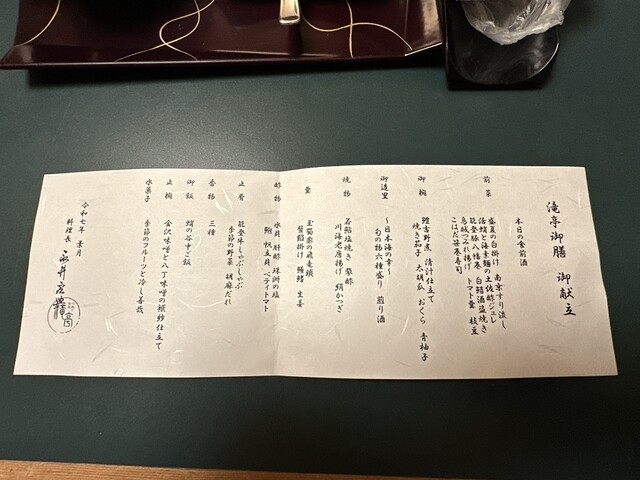 滝亭御膳 御献立
本日の食前酒
前菜
盛夏の白掛け 南京すり流し
活蛸と海素麺の土佐酢ジュレ
能登豚八幡巻 白鱚酒盗焼き
烏賊つぶれ揚げ トマト蜜 枝豆
こはだ笹巻寿司
御椀
鱧吉野煮 清汁仕立て
焼き茄子 太胡瓜 おくら 青柚子
御造里
～日本海の幸～
旬の物六種盛り 煎り酒
焼物
若鮎塩焼き 蓼酢
川海老唐揚げ 絹かつぎ
釜
玉蜀黍の飛竜頭
蟹餡掛け 鱶鰭 生姜
酢物
水貝 肝酢 珠洲の塩
鮑 帆立貝 ペティトマト
止肴
能登牛しゃぶしゃぶ
季節の野菜 胡麻だれ
香物
三種
御飯
蛸の谷中ご飯
止椀
金沢味噌と八丁味噌の袱紗仕立て
水菓子
季節のフルーツと冷し善哉
令和七年 葉月
料理長